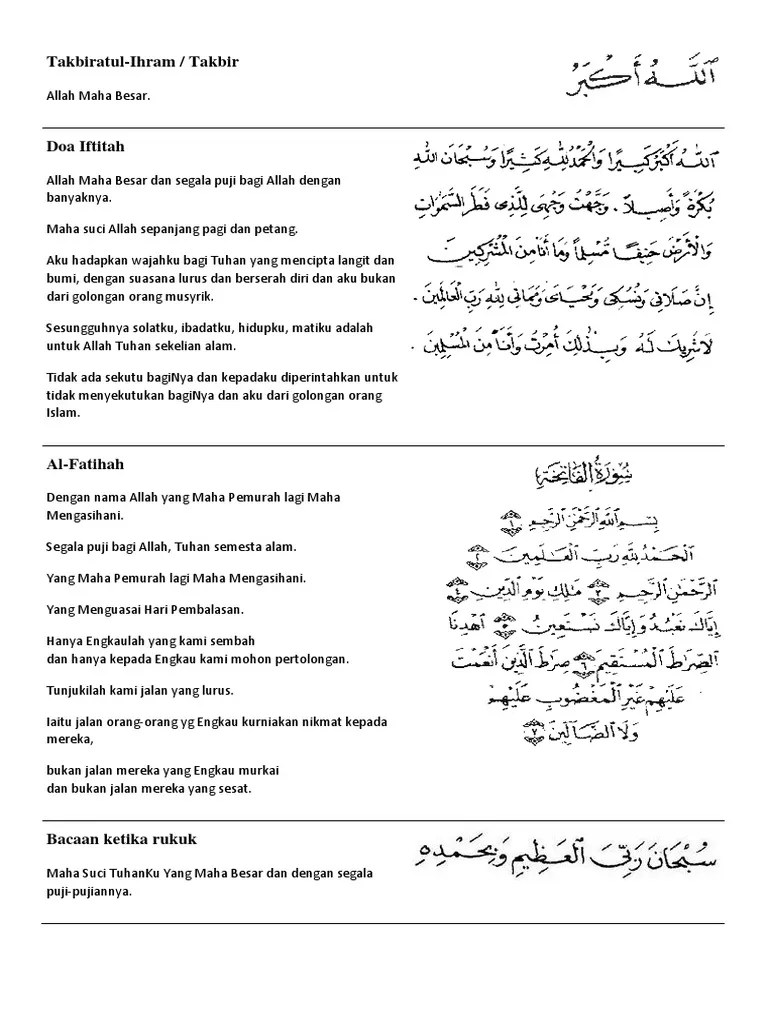 Takbiratul-Ihram / Takbir
اللَّهُ أَكْبَرُ
Allah Maha Besar.
Doa Iftitah
اللَّهُ أَكْبَرُ كَبِيرًا وَالْحَمْدُ لِلَّهِ كَثِيرًا وَسُبْحَانَ اللَّهِ
بُكْرَةً وَأَصِيلاً . وَجَّهْتُ وَجْهِىَ لِلَّذِى فَطَرَ السَّمٰوَاتِ
وَالْأَرْضَ حَنِيفًا مُسْلِمًا وَمَا أَنَا مِنَ الْمُشْرِكِينَ
إِنَّ صَلَاتِى وَنُسُكِى وَمَحْيَاىَ وَمَمَاتِى لِلَّهِ رَبِّ الْعَالَمِينَ .
لَا شَرِيكَ لَهُ وَبِذٰلِكَ أُمِرْتُ وَأَنَا مِنَ الْمُسْلِمِينَ .
Allah Maha Besar dan segala puji bagi Allah dengan
banyaknya.
Maha suci Allah sepanjang pagi dan petang.
Aku hadapkan wajahku bagi Tuhan yang mencipta langit dan
bumi, dengan suasana lurus dan berserah diri dan aku bukan
dari golongan orang musyrik.
Sesungguhnya solatku, ibadatku, hidupku, matiku adalah
untuk Allah Tuhan sekelian alam.
Tidak ada sekutu bagiNya dan kepadaku diperintahkan untuk
tidak menyekutukan bagiNya dan aku dari golongan orang
Islam.
Al-Fatihah
سُورَةُ الْفَاتِحَةِ
بِسْمِ اللَّهِ الرَّحْمٰنِ الرَّحِيمِ ١
الْحَمْدُ لِلَّهِ رَبِّ الْعَالَمِينَ ٢
الرَّحْمٰنِ الرَّحِيمِ ٣ مَالِكِ يَوْمِ الدِّينِ ٤
إِيَّاكَ نَعْبُدُ وَإِيَّاكَ نَسْتَعِينُ ٥ اهْدِنَا
الصِّرَاطَ الْمُسْتَقِيمَ ٦ صِرَاطَ الَّذِينَ أَنْعَمْتَ
عَلَيْهِمْ غَيْرِ الْمَغْضُوبِ عَلَيْهِمْ
وَلَا الضَّالِّينَ ٧
Dengan nama Allah yang Maha Pemurah lagi Maha
Mengasihani.
Segala puji bagi Allah, Tuhan semesta alam.
Yang Maha Pemurah lagi Maha Mengasihani.
Yang Menguasai Hari Pembalasan.
Hanya Engkaulah yang kami sembah
dan hanya kepada Engkau kami mohon pertolongan.
Tunjukilah kami jalan yang lurus.
Iaitu jalan orang-orang yg Engkau kurniakan nikmat kepada
mereka,
bukan jalan mereka yang Engkau murkai
dan bukan jalan mereka yang sesat.
Bacaan ketika rukuk
سُبْحَانَ رَبِّيَ الْعَظِيمِ وَبِحَمْدِهِ
Maha Suci TuhanKu Yang Maha Besar dan dengan segala
puji-pujiannya.